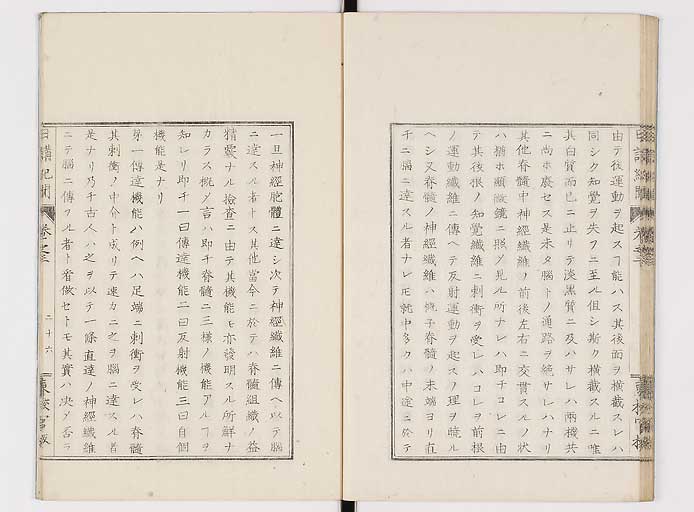 由テ徃運動ヲ起スヿ能ハス其後面ヲ横截スレハ
同シク知覺ヲ失フニ至ル但シ斯ク横截スルニ唯
其白質而已ニ止リテ淡黒質ニ及ハサレハ兩機共
ニ尚ホ廢セス是未タ腦トノ通路ヲ絶サレハナリ
其他脊髓中神經纖維ノ前後左右ニ交貫スルノ状
ハ猶ホ顯微鏡ニ照シ見ル所ナレハ即チコレニ由
テ其後根ノ知覺纖維ニ刺衝ヲ受レハコレヲ前根
ノ運動纖維ニ傳ヘテ反射運動ヲ起スノ理ヲ暁ル
ヘシ又脊髓ノ神經纖維ハ脊髓ノ末端ヨリ直
チニ腦ニ達スル者ナレ𪜈就中多クハ中途ニ於テ
一旦神經胞體ニ達シ次テ神經纖維ニ傳ヘ以テ腦
ニ達スル者トス其他當今ニ於テハ脊髓組織ノ益
精覈ナル撿查ニ由テ其機能モ亦發明スル所鮮ナ
カラス概シテ言ハ即チ脊髓ニ三様ノ機能アルヿヲ
知レリ即チ一曰傳達機能二曰反射機能三曰自個
機能是ナリ
第一傳達機能ハ例ヘハ足端ニ刺衝ヲ受レハ脊髓
其刺衝ノ中介ト成リテ速カニ之ヲ腦ニ達スル者
是ナリ乃チ古人ハ之ヲ以テ一條直達ノ神經纖維
ニテ腦ニ傳フル者ト看做セトモ其實ハ決シテ否ラ
日講記聞
卷之三
二十六